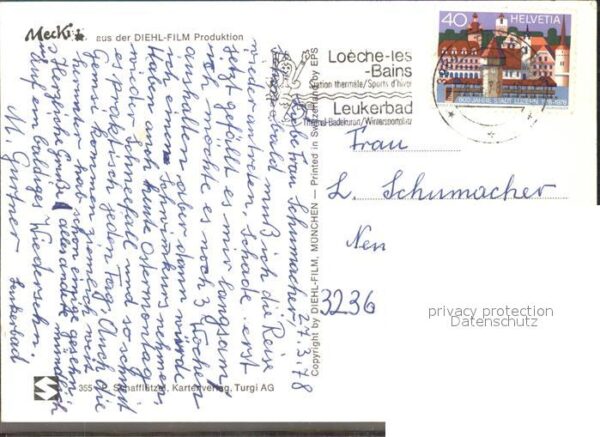 Mecki aus der DIEHL-FILM Produktion
Loèche-les
-Bains
Station thermale/Sports d'hiver
Leukerbad
Thermal-Badekurort/Wintersportplatz
40 HELVETIA
800 JAHRE STADT LUZERN 1178-1978
Frau
L. Schumacher
Nen
3236
privacy protection
Datenschutz
27.3.78
Liebe Frau Schumacher,
bald muß ich die Reise
wieder antreten, schade erst
jetzt gefällt es mir langsam
ich möchte es noch 3 Wochen
aushalten aber dann würde
ich einen Schwimmkurs nehmen.
Haben auch heute Ostermontag
wieder Schneefall und so schneit
es praktisch jeden Tag. Auch die
Gehirn kommen ziemlich mit
hat schon einige gesehn.
Herzliche Grüße alles andere mündlich
auf ein baldiges Wiedersehn.
M. Gurtner Leukerbad
Copyright by DIEHL-FILM, MÜNCHEN — Printed in Switzerland by EPS
355 P. Schafflützel, Kartenverlag, Turgi AG